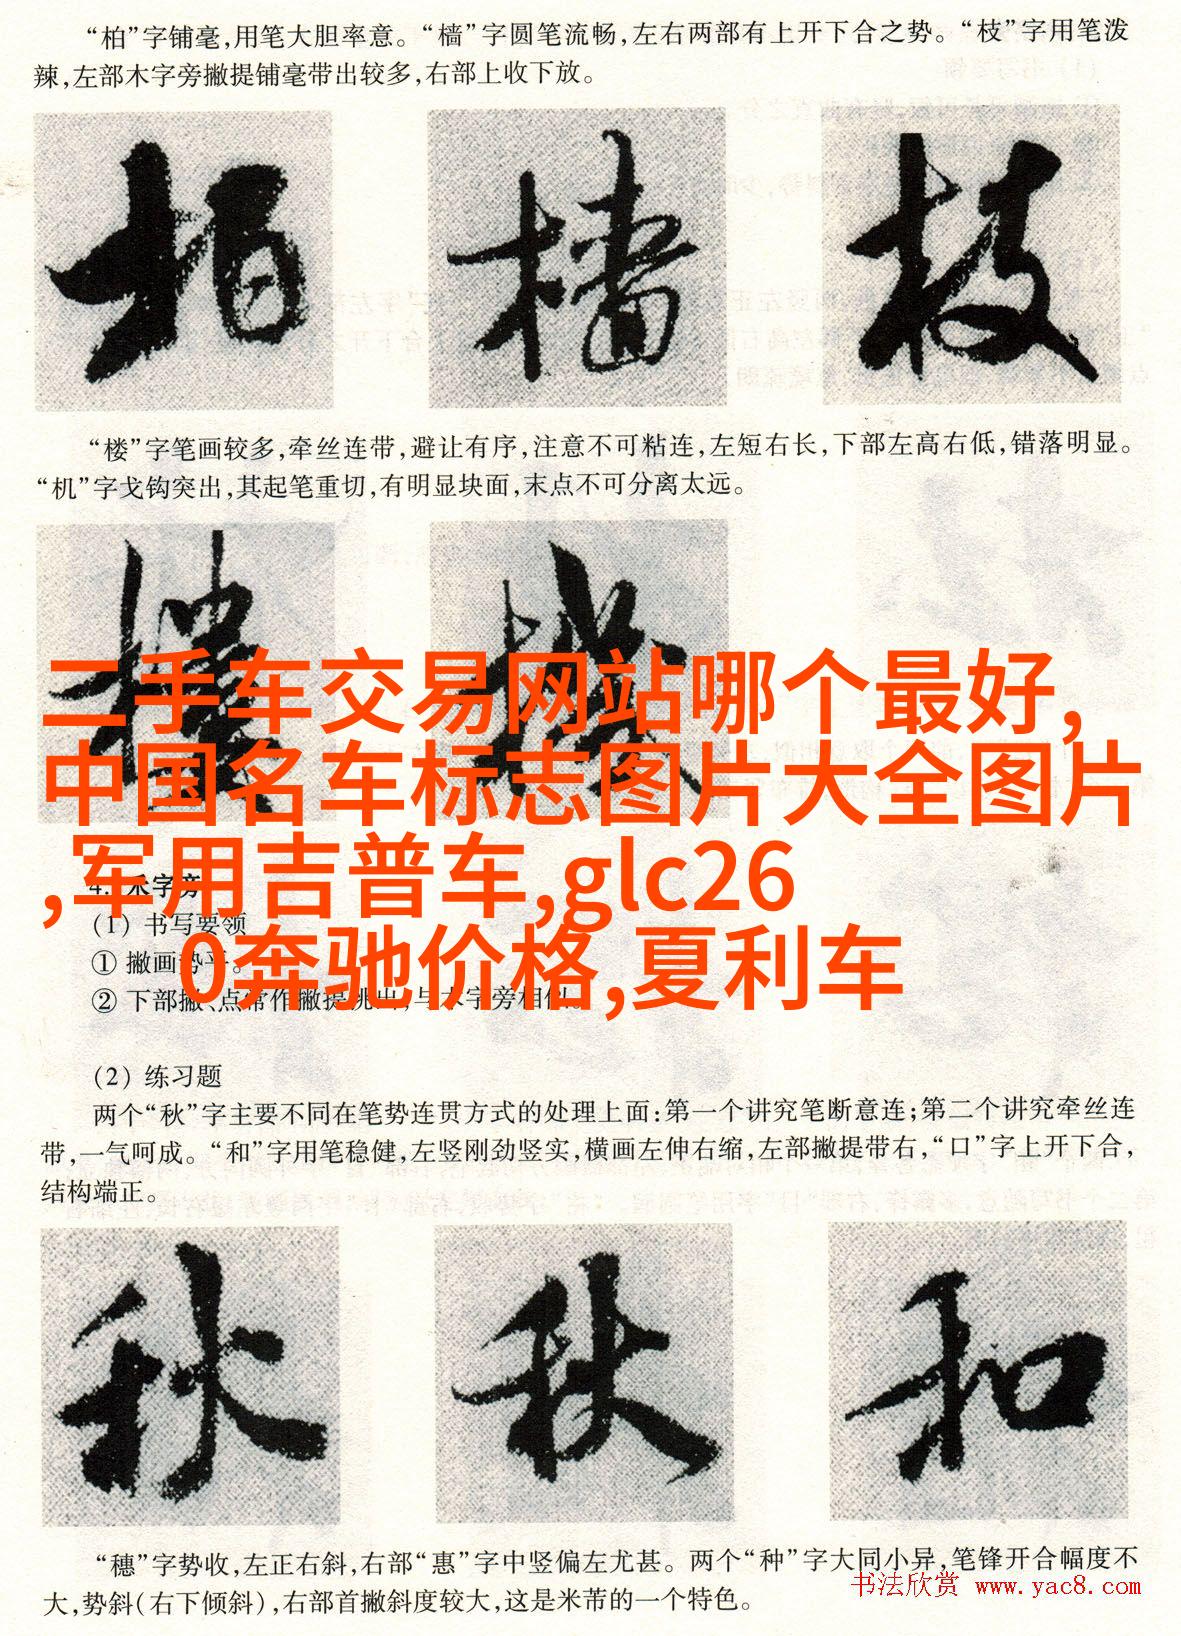 “柏”字铺毫,用笔大胆率意。“樯”字圆笔流畅,左右两部有上开下合之势。“枝”字用笔泼
辣,左部木字旁撇提铺毫带出较多,右部上收下放。
柏 樯 枝
“楼”字笔画较多,牵丝连带,避让有序,注意不可粘连,左短右长,下部左高右低,错落明显。
“机”字戈钩突出,其起笔重切,有明显块面,末点不可分离太远。
樓 機
二手车交易网站哪个最好,
中国名车标志图片大全图片
,军用吉普车,glc26
0奔驰价格,夏利车
4. 禾字旁
(1) 书写要领
① 撇画势平。
② 下部撇、点常作撇提挑出,与木字旁相似。
(2) 练习题
两个“秋”字主要不同在笔势连贯方式的处理上面:第一个讲究笔断意连;第二个讲究牵丝连
带,一气呵成。“和”字用笔稳健,左竖刚劲竖实,横画左伸右缩,左部撇提带右,“口”字上开下合,
结构端正。
秋 秋 和
“穗”字势收,左正右斜,右部“惠”字中竖偏左尤甚。两个“种”字大同小异,笔锋开合幅度不
大,势斜(右下倾斜),右部首撇斜度较大,这是米芾的一个特色。
书法欣赏 www.yac8.com